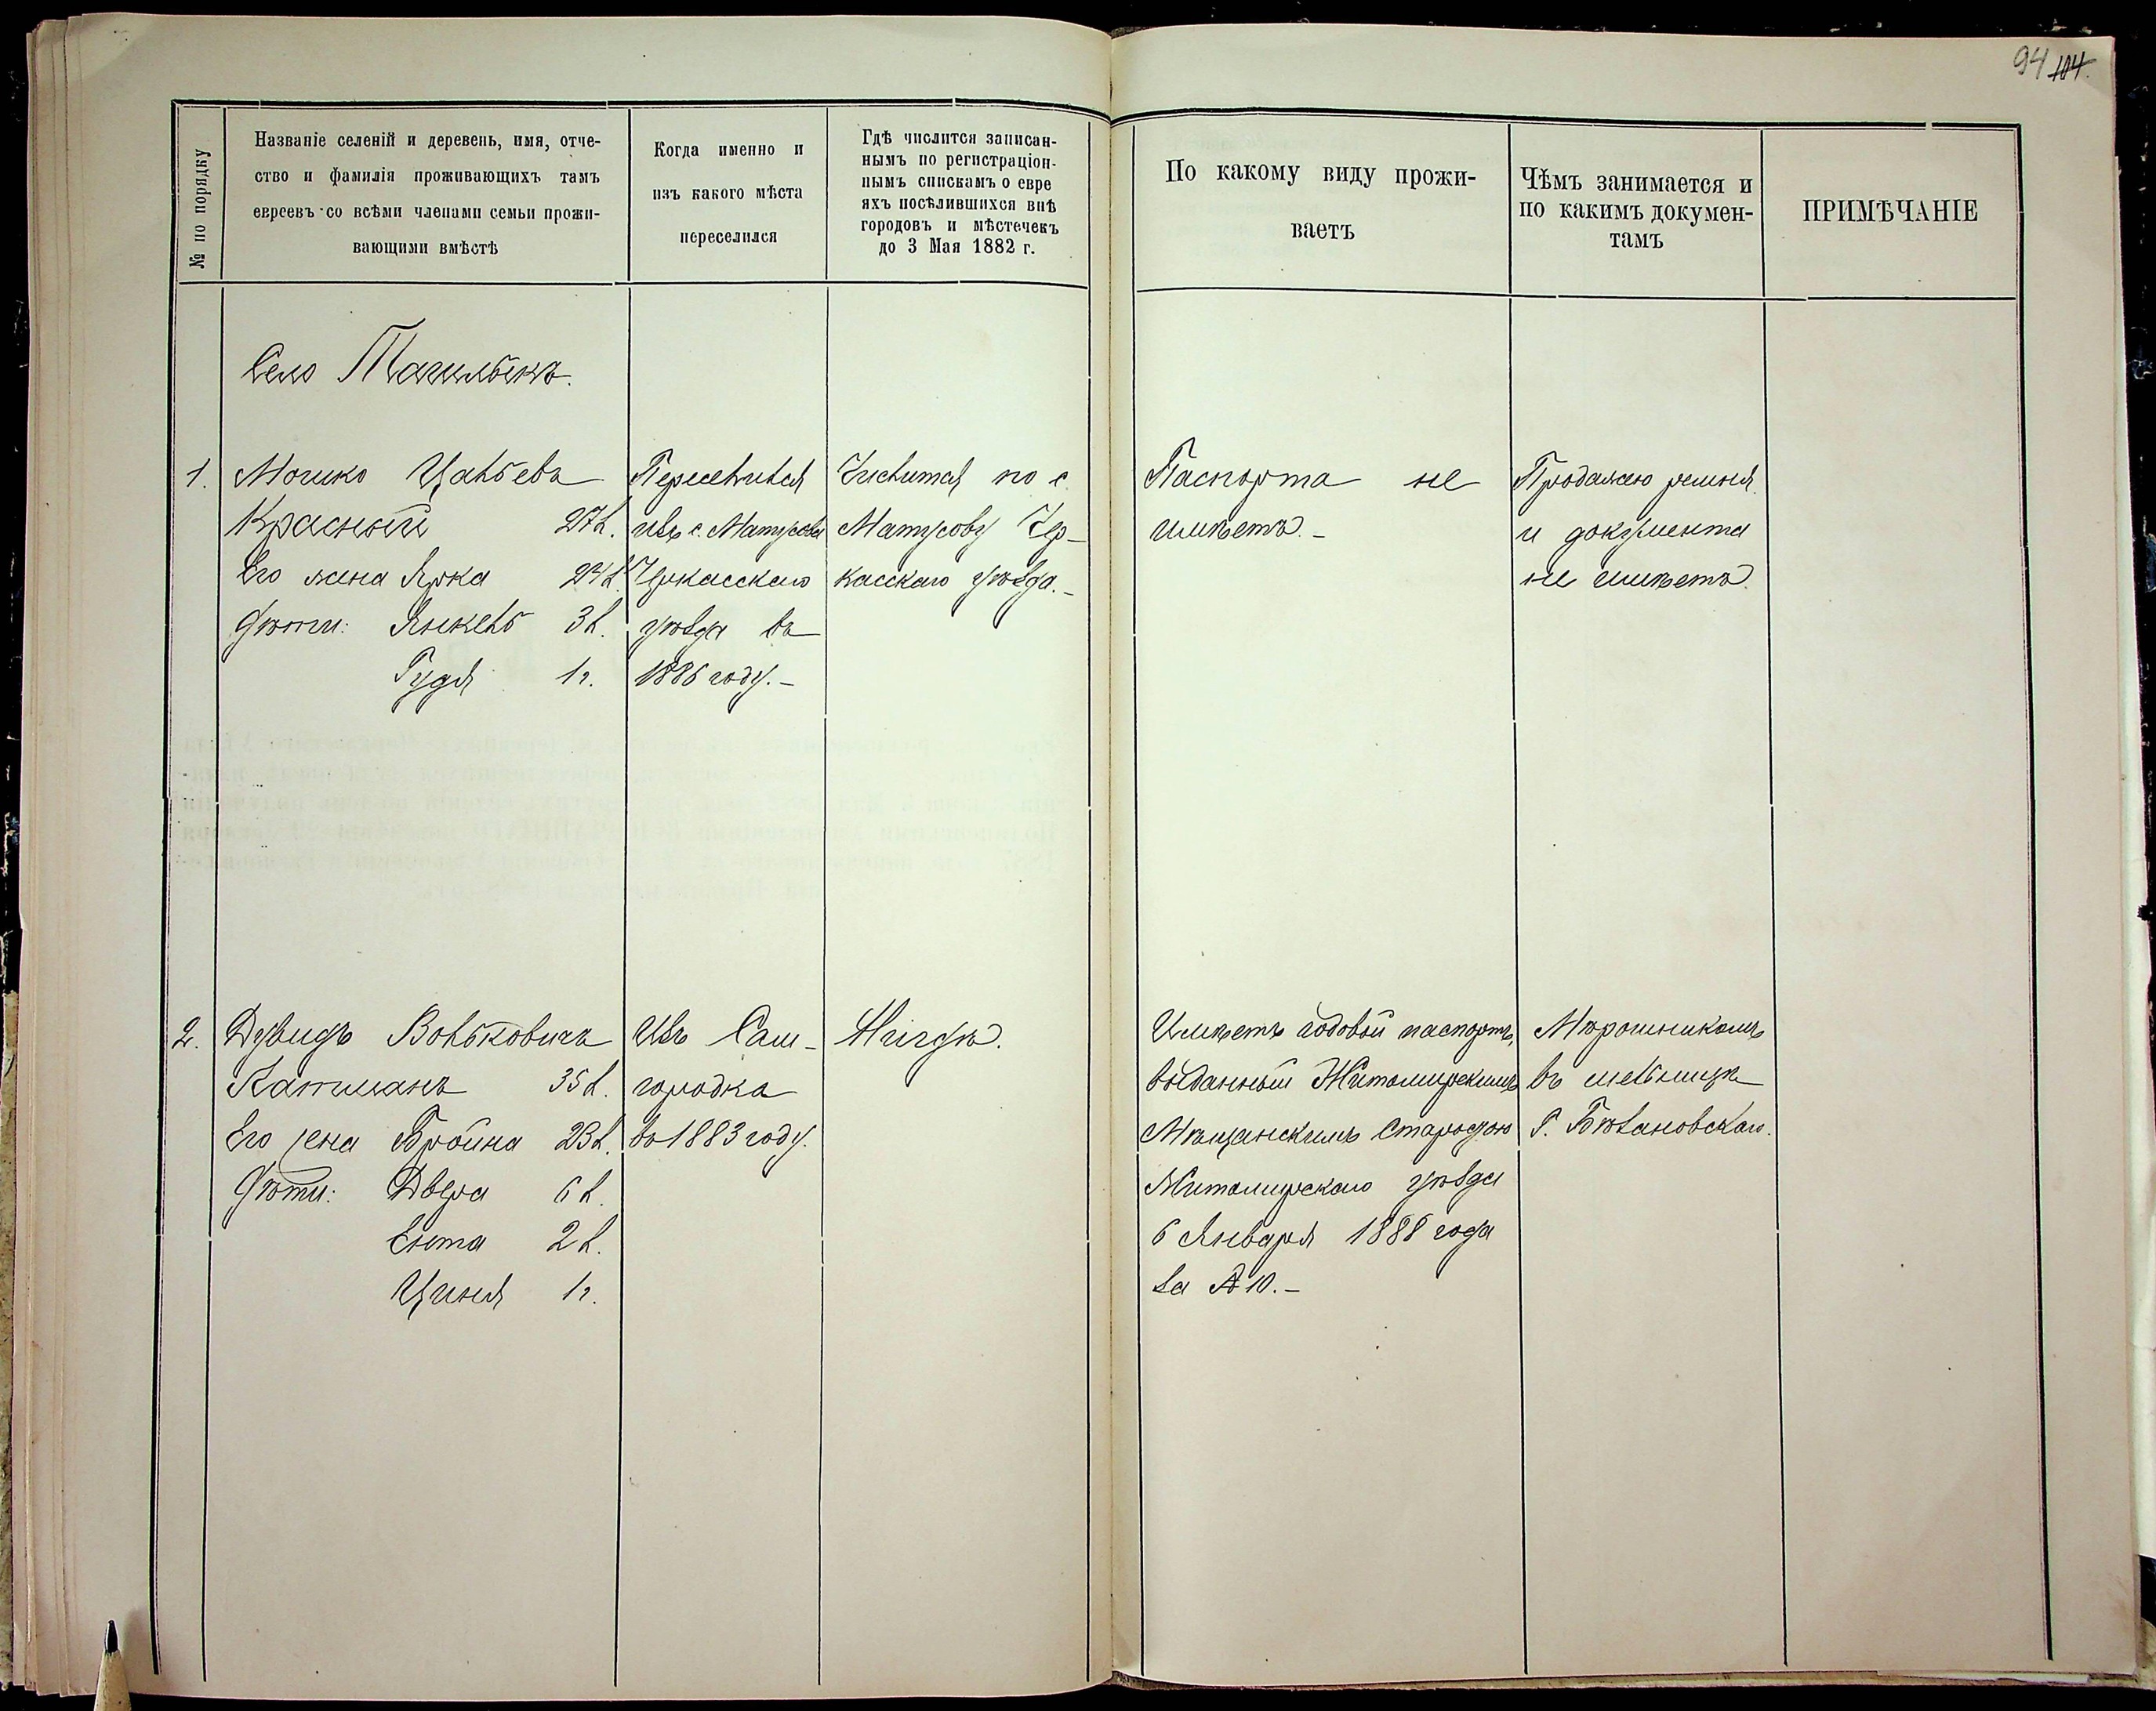 94 104.
№ по порядку
Названіе селеній и деревень, имя, отче-
ство и фамилія проживающихъ тамъ
евреевъ со всѣми членами семьи прожи-
вающими вмѣстѣ
Когда именно и
изъ какого мѣста
переселился
Гдѣ числится записан-
нымъ по регистраціон-
нымъ спискамъ о евре
яхъ посѣлившихся внѣ
городовъ и мѣстечекъ
до 3 Мая 1882 г.
По какому виду прожи-
ваетъ
Чѣмъ занимается и
по какимъ докумен-
тамъ
ПРИМѢЧАНІЕ
Село
1.
Мошко Цалевъ
Красный 27 л.
Его жена 24 л.
Дѣти: Янкель 3 л.
Гудя 1 г.
Переселился
изъ с. Матусова
Черкасскаго
уѣзда въ
1886 году.-
Числится по с
Матусову Чер-
касскаго уѣзда.-
Паспорта не
имѣетъ.-
Продажею ремня
и документа
не имѣетъ.
2.
Дувидъ Вольковичъ
35 л.
Его жена Бройна 23 л.
Дѣти: Двера 6 л.
Ента 2 л.
Циня 1 г.
Изъ Сам-
городка
въ 1883 году.
Нигдѣ.
Имѣетъ годовой паспортъ,
выданный Житомирскимъ
Мѣщанскимъ Старостою
Житомирскаго уѣзда
6 Января 1888 года
за № 10.-
Мѣрошникомъ
въ мельницѣ
Г.